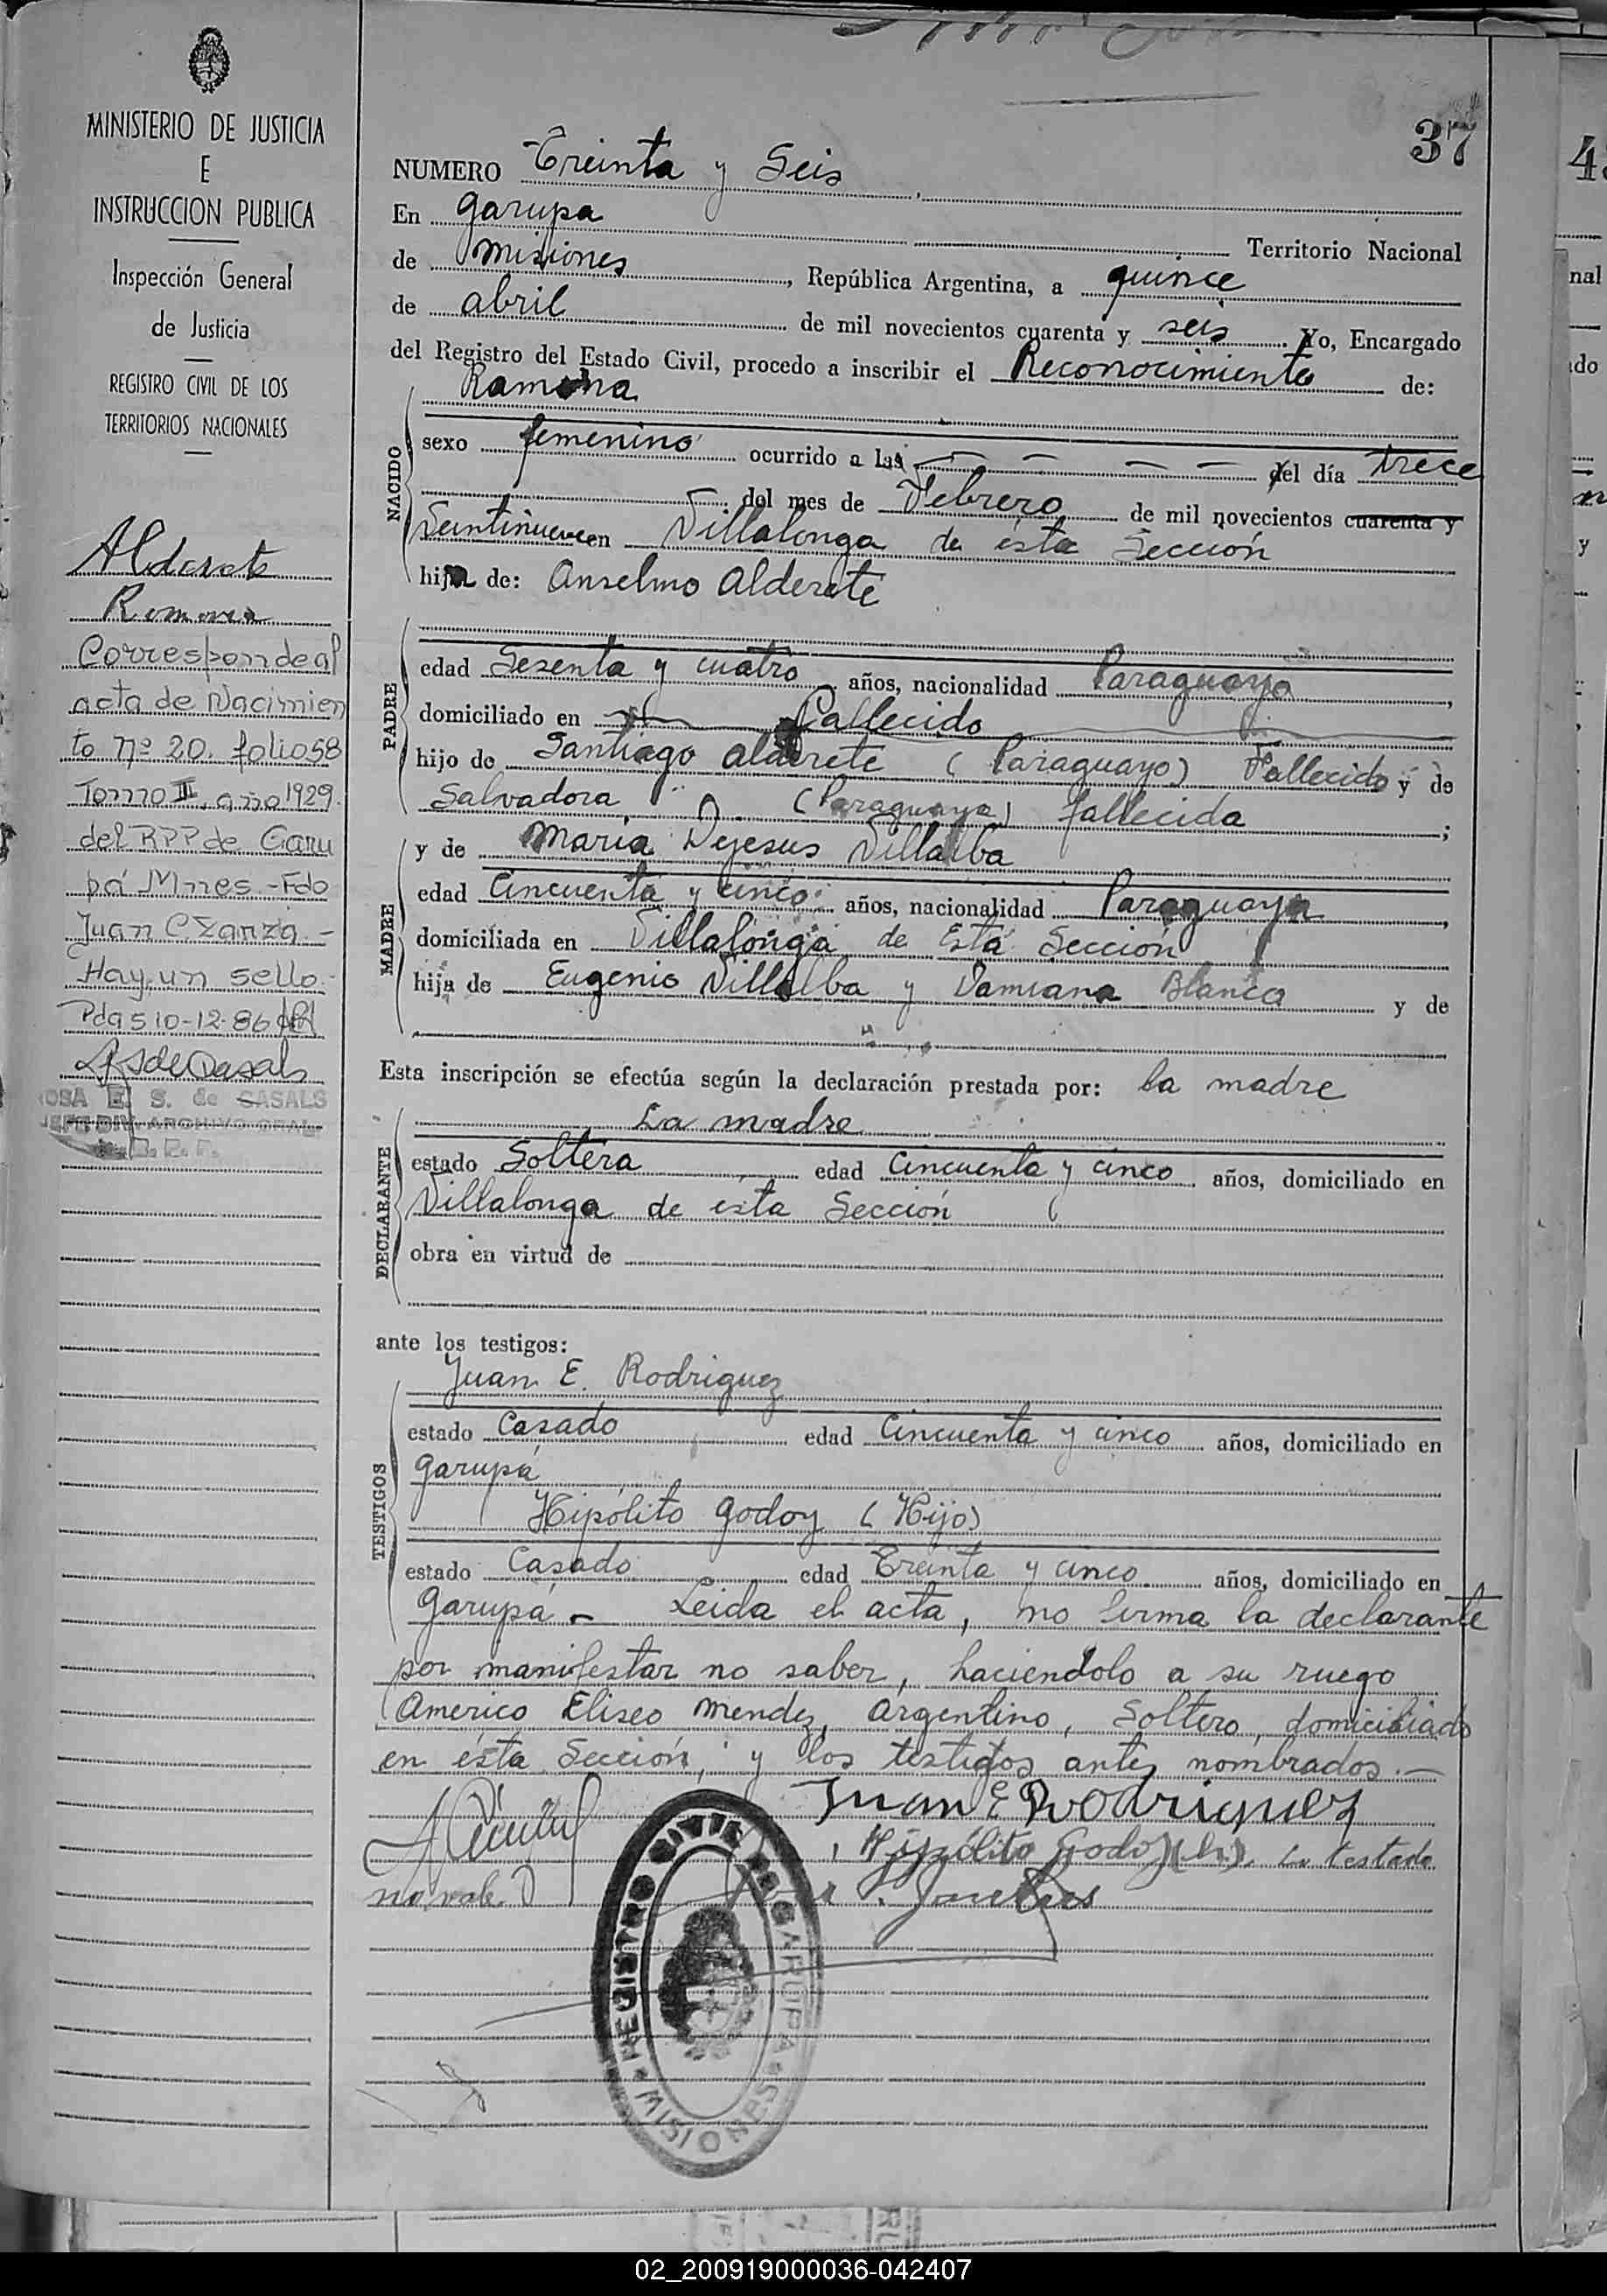 MINISTERIO DE JUSTICIA
E
INSTRUCCION PUBLICA
Inspección General
de Justicia
REGISTRO CIVIL DE LOS
TERRITORIOS NACIONALES
Alderete
Ramona
Corresponde al
acta de Nacimien
to nº 20. folio 58
Tomo II, año 1929.
del RPP de Garu
pá Mnes. - Fdo
Juan C. Zanza. -
Hay un sello.
Pdas 10-12-86
ROSA E. S. de CASALS
JEFE DIV. ARCHIVO GRAL.
37
NUMERO Treinta y Seis
En Garupa Territorio Nacional
de Misiones, República Argentina, a quince
de abril de mil novecientos cuarenta y seis. Yo, Encargado
del Registro del Estado Civil, procedo a inscribir el Reconocimiento de:
NACIDO
Ramona
sexo femenino ocurrido a las — — — — del día trece
del mes de Febrero de mil novecientos cuarenta y
Veintinueve en Villalonga de ésta Sección
hija de: Anselmo Alderete
PADRE
edad Sesenta y cuatro años, nacionalidad Paraguayo,
domiciliado en Fallecido
hijo de Santiago Alderete (Paraguayo) Fallecido y de
Salvadora " (Paraguaya) fallecida;
MADRE
y de María Dejesus Villalba
edad Cincuenta y cinco años, nacionalidad Paraguaya,
domiciliada en Villalonga de Esta Sección
hija de Eugenio Villalba y Damiana Blanca y de
Esta inscripción se efectúa según la declaración prestada por: la madre
DECLARANTE
La madre
estado Soltera edad Cincuenta y cinco años, domiciliado en
Villalonga de ésta Sección
obra en virtud de
ante los testigos:
TESTIGOS
Juan E. Rodriguez
estado Casado edad Cincuenta y cinco años, domiciliado en
Garupá
Hipólito Godoy (Hijo)
estado Casado edad Treinta y cinco años, domiciliado en
Garupá - Leida el acta, no firma la declarante
por manifestar no saber, haciendolo a su ruego
Americo Eliseo Mendez, Argentino, Soltero, domiciliado
en ésta Sección, y los testigos antes nombrados. —
Juan E Rodriguez
Hipólito Godoy (hi). Lo testado
no vale
REGISTRO CIVIL DE GARUPA
MISIONES
02_200919000036-042407